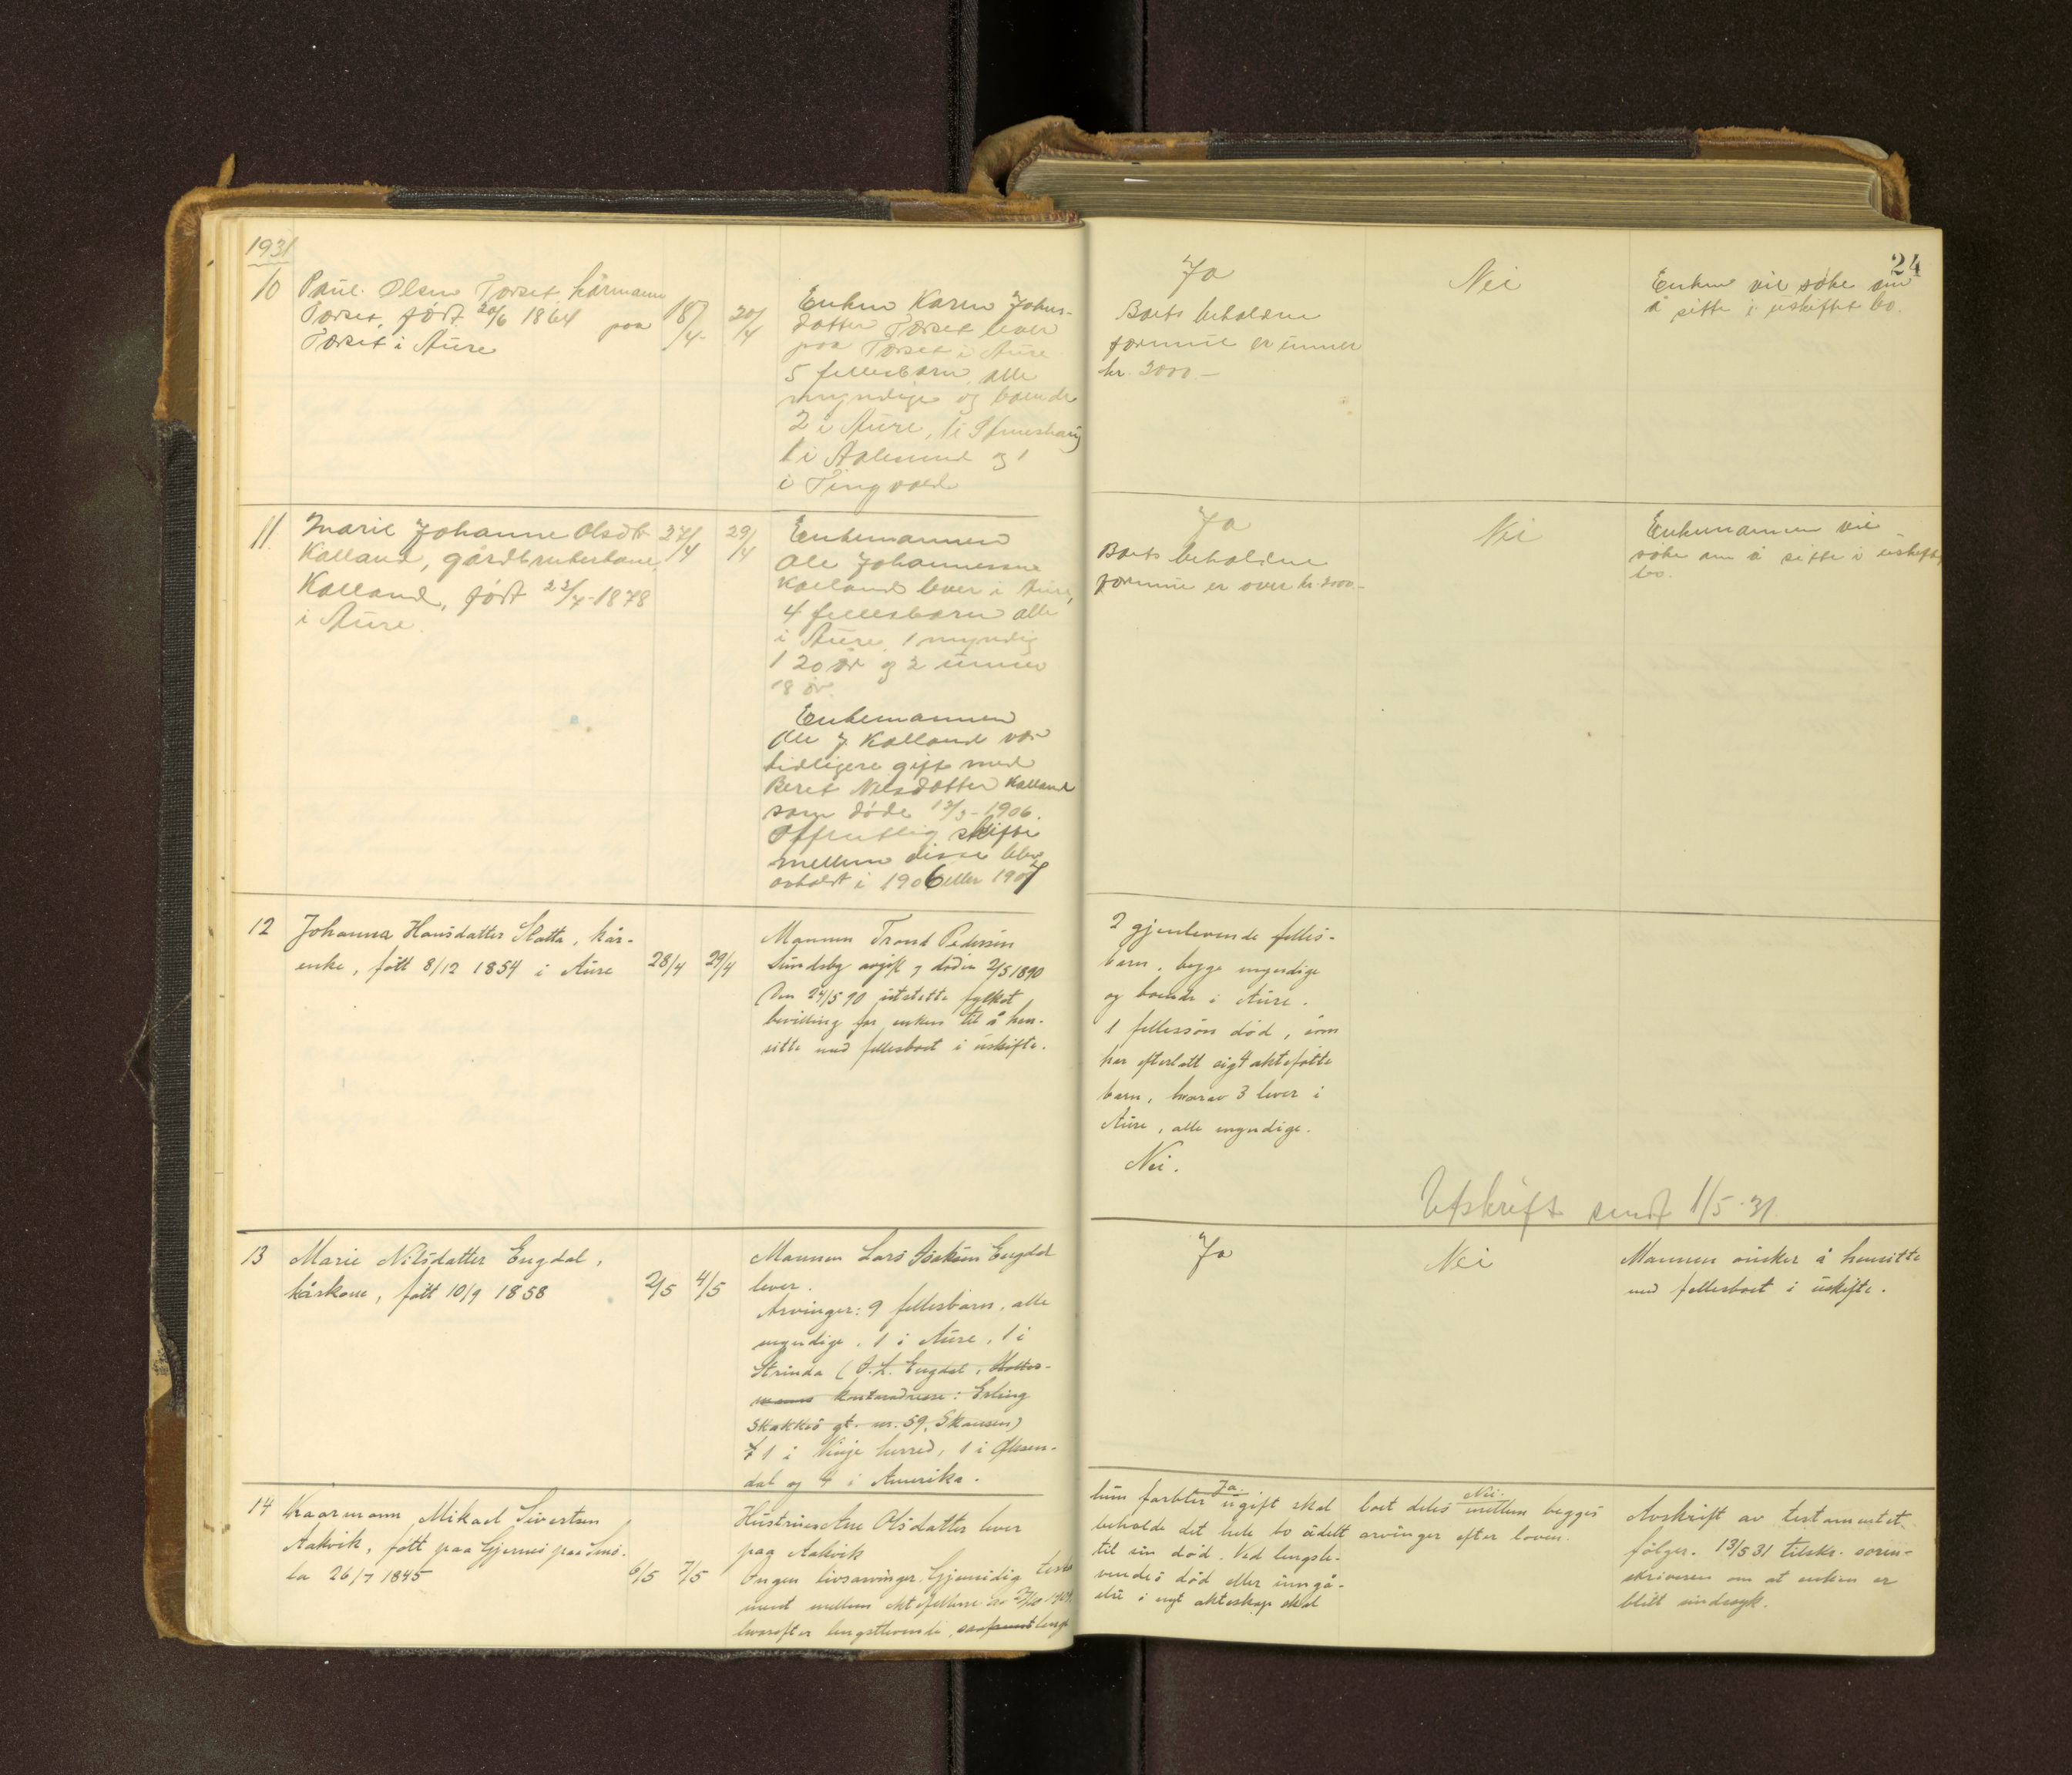 1931
24
10
Paul Olsen Torset, kårmann
Torset, født 20/6 1864 paa
Torset i Aure
18/4
20/4
Enken Karen Johns-
datter Torset lever
paa Torset i Aure
5 fellesbarn, alle
myndige og boende
2 i Aure, 1 i
1 i Aalesund og 1
i Tingvold
Ja
Boets beholdne
formue er under
kr. 2000 –
Nei
Enken vil søke om
å sitte i uskiftet bo.
11
Marie Johanne Olsdtr
Kalland, gårdbrukerkone,
Kalland, født 23/7-1878
i Aure.
27/4
29/4
Enkemannen
Ole Johannessen
Kalland lever i Aure,
4 fellesbarn alle
i Aure. 1 myndig
1 20 år og 2 under
18 år.
Enkemannen
Ole J. Kalland var
tidligere gift med
Beret Nilsdatter Kalland
som døde 13/3-1906.
Offentlig skifte
mellem disse blev
avholdt i 1906 eller 1907
Ja
Boets beholdne
formue er over kr. 2000.–
Nei
Enkemannen vil
søke om å sitte i uskiftet
bo.
12
Johanna Hansdatter Slatta, kår-
enke, født 8/12 1854 i Aure
28/4
29/4
Mannen Trond Pedersen
Sundsby avgikk v døden 2/5 1890
Den 24/5 90 utstette fylket
bevilling for enken til å hen-
sitte med fellesboet i uskifte.
2 gjenlevende felles-
barn, begge myndige
og boende i Aure.
1 fellessøn død, som
har efterlatt sig 4 aktefødte
barn, hvorav 3 lever i
Aure, alle myndige.
Nei.
Utskrift sendt 1/5-31
13
Marie Nilsdatter Engdal,
kårkone, født 10/9 1858
2/5
4/5
Mannen Lars Engdal
lever.
Arvinger: 9 fellesbarn, alle
myndige. 1 i Aure, 1 i
Strinda (O. L. Engdal,
kontoradresse: Erling
Skakkes gt. nr. 59, Skansen)
1 i Vinje herred, 1 i Øksen-
dal og 4 i Amerika.
Ja
Nei
Mannen ønsker å hensitte
med fellesboet i uskifte.
14
Kaarmann Mikael Sivertsen
Aakvik, født paa Gjernes paa Smø-
la 26/7 1845
6/5
7/5
Hustruen Ane Olsdatter lever
paa Aakvik
Ingen livsarvinger. Gjensidig testa
ment mellem ektefellene av
hvorefter lengstlevende, lengst
Ja.
hun forblir ugift skal
beholde det hele bo udelt
til sin død. Ved lengstle-
vendes død eller inngå-
else i nyt ekteskap skal
Nei.
boet deles mellem begges
arvinger efter loven.
Avskrift av testamentet
følger. 13/5 31 tilskr. soren-
skriveren om at enken er
blitt sindssyk.